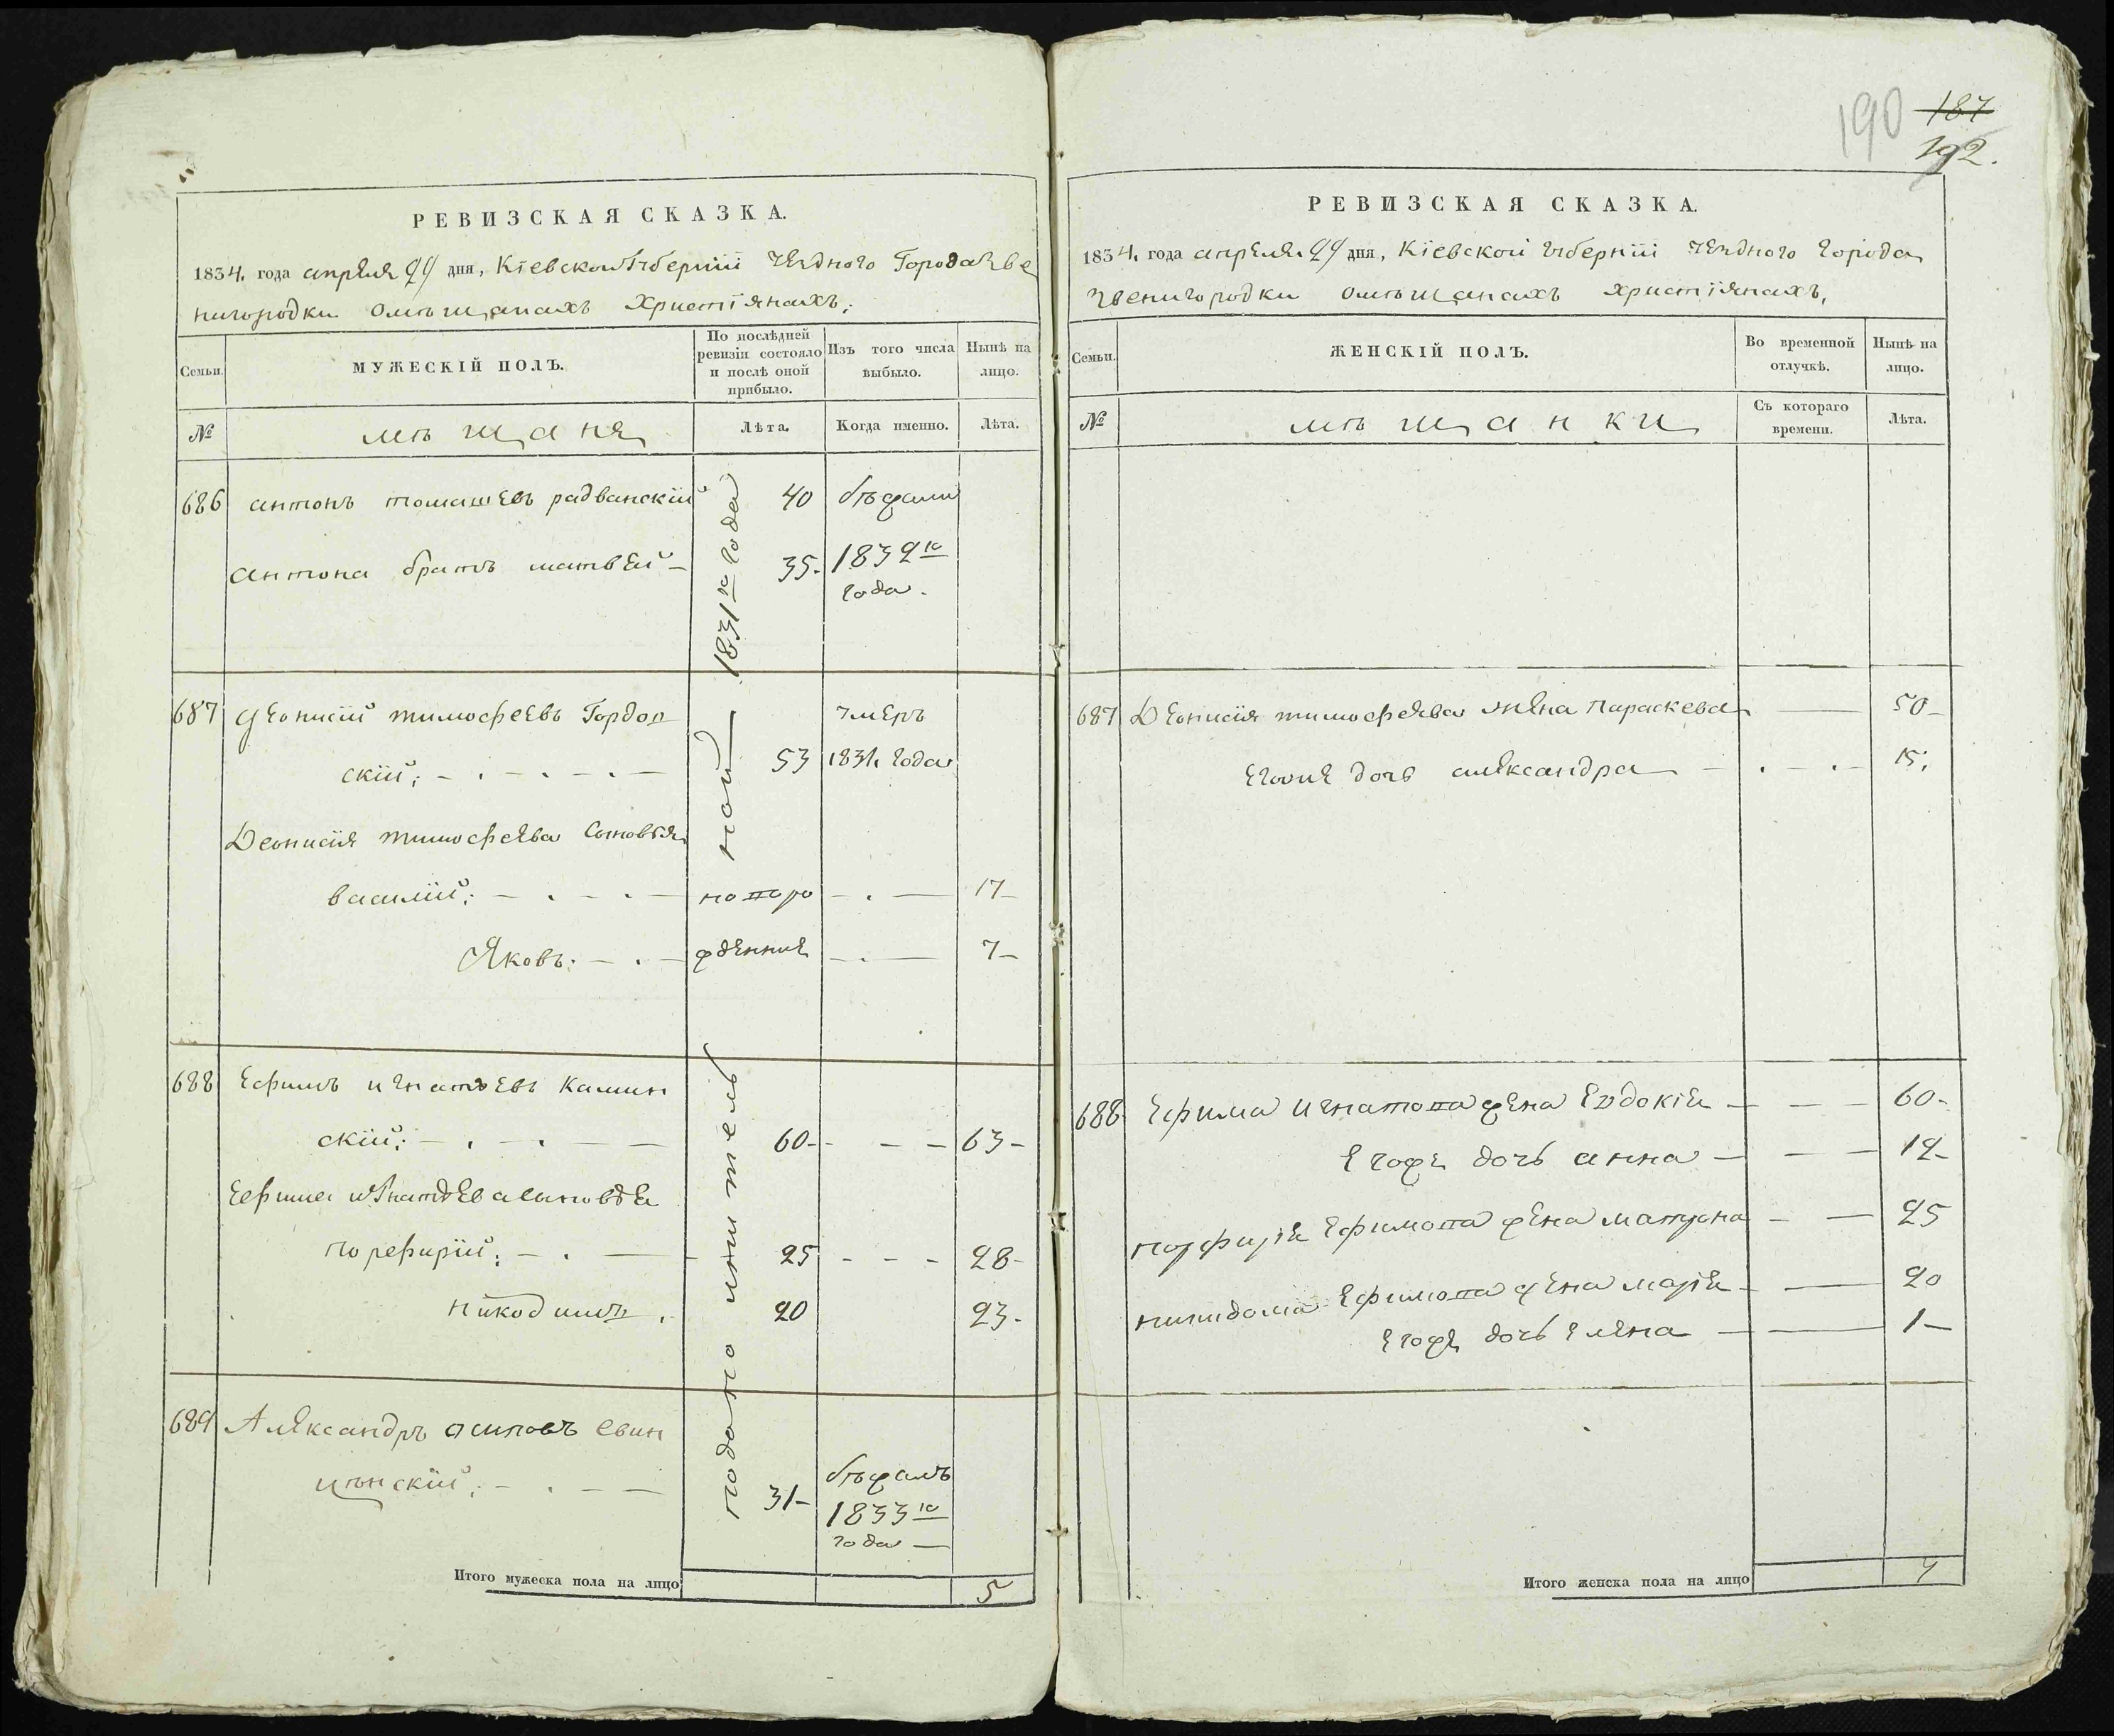 190 187
192.
РЕВИЗСКАЯ СКАЗКА.
1834. года апреля 29 дня, Кіевской Губерніи уезднаго Города Зве
нигородки омѣщанахъ христіянахъ;
Семьи. МУЖЕСКІЙ ПОЛЪ. По послѣдней ревизіи состояло и послѣ оной прибыло. Изъ того числа выбыло. Нынѣ на лицо.
№ мѣщане Лѣта. Когда именно. Лѣта.
686 антонъ томашевъ радванскій 40 бѣжали
Антона братъ матвей — 35. 1832го
года.
687 Деонисій тимофеевъ Гордон умеръ
скій; 53 1831. года
Деонисія тимофеева сыновья
василій; — новоро 17—
Яковъ: — жденние 7—
688 Ефимъ игнатьевъ Камин
скій; — 60 — 63—
Ефима игнатьева сыновья
порфирій; — 25 — 28—
никодимъ. 20 23—
689 Александръ осиповъ свин
цѣнскій; — 31— бѣжалъ
1833го
года —
подано дополнительной 1831го года
Итого мужеска пола на лицо 5
РЕВИЗСКАЯ СКАЗКА.
1834. года апреля 29 дня, Кіевской губерніи уездного города
Звенигородки омѣщанахъ христіянахъ,
Семьи. ЖЕНСКІЙ ПОЛЪ. Во временной отлучкѣ. Нынѣ на лицо.
№ мѣщанки Съ котораго времени. Лѣта.
687 Деонисія тимофеева жена Параскева — 50—
Егоже дочь александра — 15;
688 Ефима игнатова жена Евдокія — 60—
Егоже дочь анна — 12—
порфирія Ефимова жена матрона — 25
Ефимова жена марія — 20
Егоже дочь елена — 1—
Итого женска пола на лицо 7